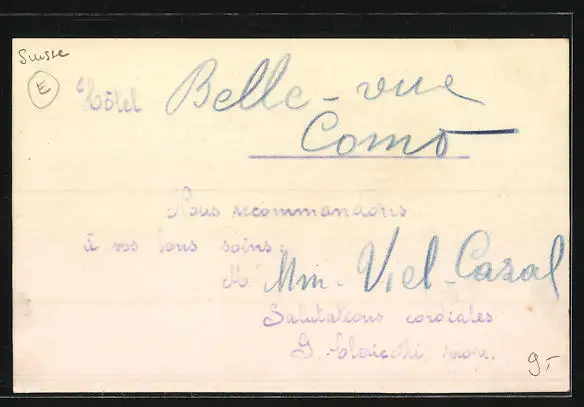 Suisse
E
Hôtel Belle-vue
Como
Nous recommandons
à vos bons soins:
M. Mm. Viel-Cazal
Salutations cordiales
G.
9.-